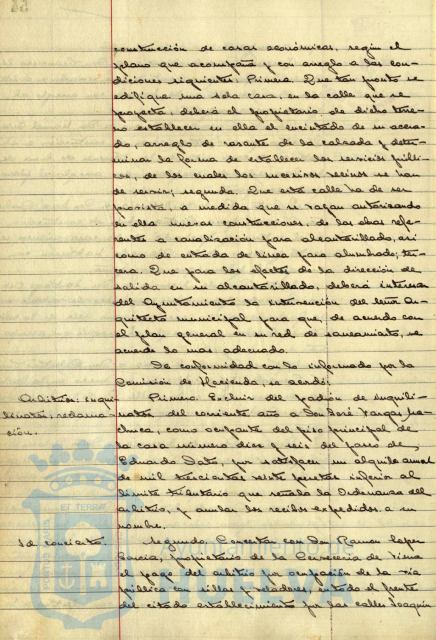 construcción de casas económicas, según el
plano que acompaña y con arreglo a las con-
diciones siguientes: Primera. Que tan pronto se
edifique una sola casa, en la calle que se
proyecta, deberá el propietario de dicho terre-
no establecer en ella el encintado de su acera-
do, arreglo de rasante de la calzada y deter-
minar la forma de establecer los servicios públi-
cos, de los cuales los sucesivos vecinos se han
de servir; segunda. Que esta calle ha de ser
provista, a medida que se vayan autorizando
en ella nuevas construcciones, de las obras refe-
rentes a canalización para alcantarillado, así
como de entrada de línea para alumbrado; ter-
cera. Que para los efectos de la dirección de
salida en su alcantarillado, deberá interesar
del Ayuntamiento la intervención del señor Ar-
quitecto municipal para que, de acuerdo con
el plan general en su red de saneamiento, se
acuerde lo mas adecuado.
De conformidad con lo informado por la
Comisión de Hacienda, se acordó:
Arbitrios: inqui-
linatos, reclama-
ción.
Primero. Excluir del padrón de inquili-
natos del corriente año a Don José Vargas Ma-
chuca, como ocupante del piso principal de
la casa número diez y seis del paseo de
Eduardo Dato, por satisfacer un alquiler anual
de mil trescientas siete pesetas inferior al
límite tributario que señala la Ordenanza del
arbitrio, y anular los recibos expedidos a su
nombre.
Id. concierto.
Segundo. Concertar con Don Ramon Lopez
Garcia, propietario de la Cerveceria de Viena
el pago del arbitrio por ocupación de la vía
pública con sillas y veladores, en todo el frente
del citado establecimiento por las calles Joaquín
ET TERRA